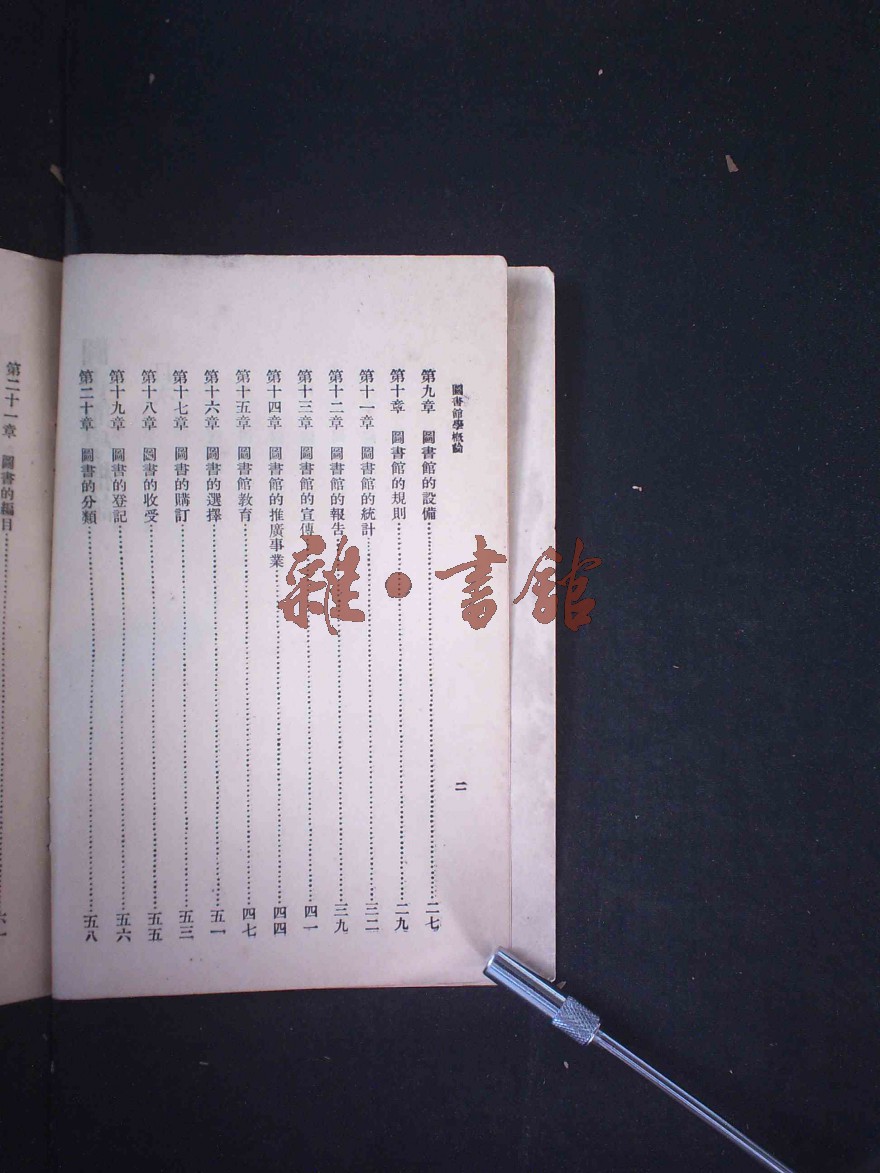 圖書館學概論
二
第九章 圖書館的設備⋯⋯二七
第十章 圖書館的規則⋯⋯二九
第十一章 圖書館的統計⋯⋯三二
第十二章 圖書館的報告⋯⋯三九
第十三章 圖書館的宣傳⋯⋯四一
第十四章 圖書館的推廣事業⋯⋯四四
第十五章 圖書館教育⋯⋯四七
第十六章 圖書的選擇⋯⋯五一
第十七章 圖書的購訂⋯⋯五三
第十八章 圖書的收受⋯⋯五五
第十九章 圖書的登記⋯⋯五六
第二十章 圖書的分類⋯⋯五八
第二十一章 圖書的編目⋯⋯六一
雜·書館